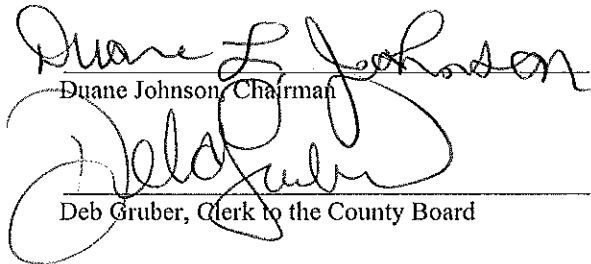 Duane L Johnson
Duane Johnson, Chairman
Deb Gruber
Deb Gruber, Clerk to the County Board